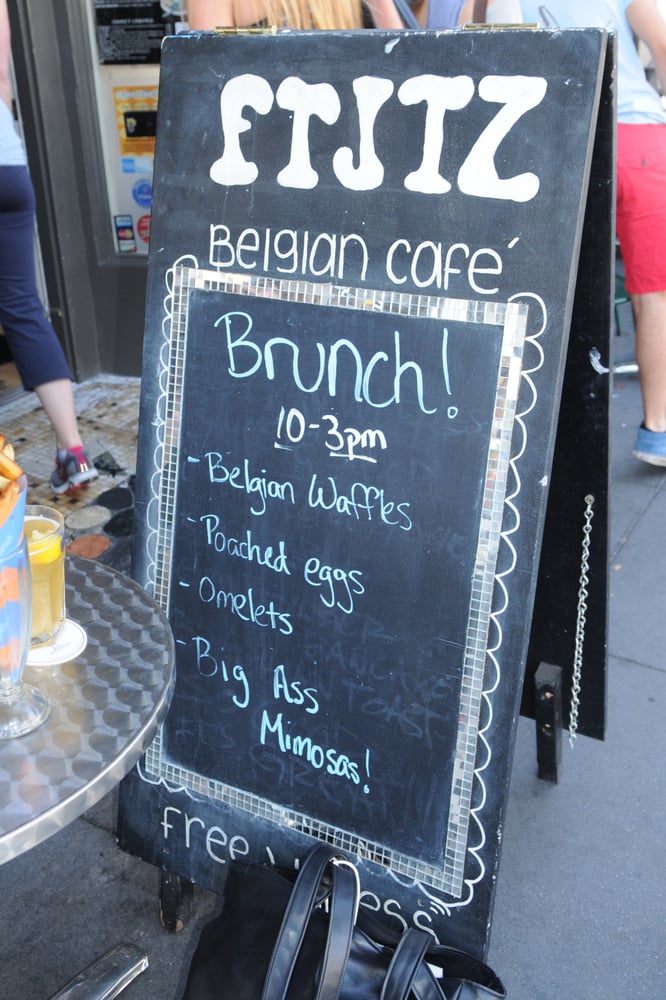 FRJTZ
Belgian café
Brunch!
10-3pm
- Belgian Waffles
- Poached eggs
- Omelets
- Big Ass
Mimosas!
free